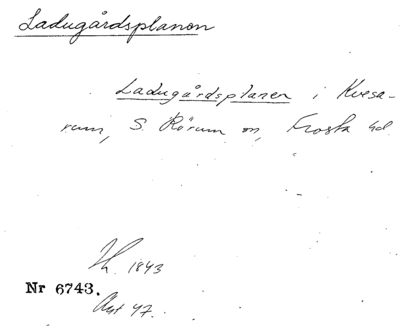 Ladugårdsplanen
Ladugårdsplanen i Kvesa-
rum, S. Rörum sn, Frosta hd
1843
Nr 6743.
Avst 47.